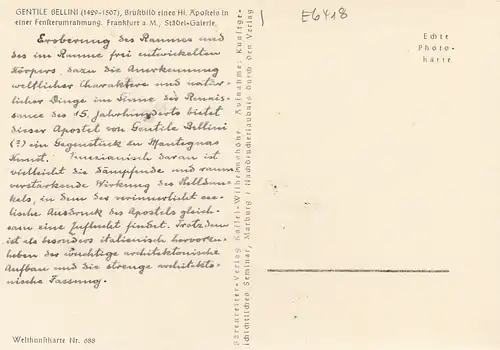 GENTILE BELLINI (1429-1507), Brustbild eines Hl. Apostels in
einer Fensterumrahmung. Frankfurt a. M., Städel-Galerie.
Eroberung des Raumes und
des im Raume frei entwickelten
Körpers, dazu die Anerkennung
weltlicher Charaktere und natür-
licher Dinge im Sinne der Renais-
sance des 15. Jahrhunderts bietet
dieser Apostel von Gentile Bellini
(?) ein Gegenstück zu Mantegnas
Kunst. Venezianisch daran ist
vielleicht die dämpfende und raum
verstärkende Wirkung des Helldun-
kels, in dem der verinnerlicht see-
lische Ausdruck des Apostels gleich-
sam eine Zuflucht findet. Trotzdem
ist als besonders italienisch hervorzu-
heben der wuchtige architektonische
Aufbau und die strenge architekto-
nische Fassung.
Weltkunstkarte Nr. 688
Bärenreiter-Verlag Kassel-Wilhelmshöhe. Aufnahme: Kunstge-
schichtliches Seminar, Marburg / Nachdruckerlaubnis durch den Verlag
E6418
Echte
Photo-
karte